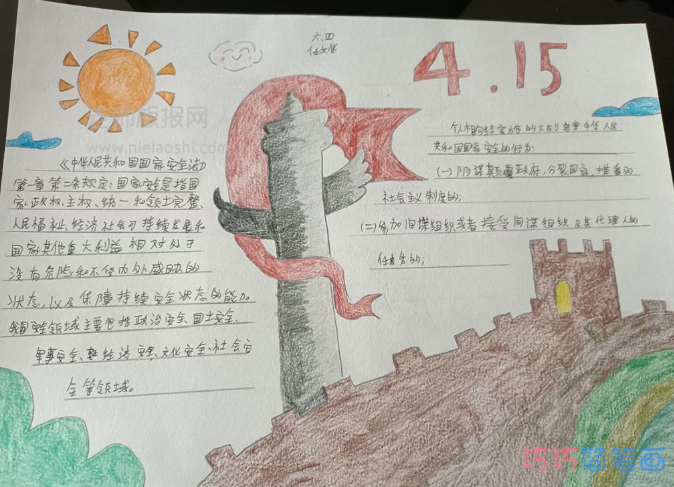 六.四
4.15
《中华人民共和国国家安全法》
第一章第二条规定:国家安全是指国
家政权、主权、统一和领土完整、
人民福祉、经济社会可持续发展和
国家其他重大利益相对处于
没有危险和不受内外威胁的
状态,以及保障持续安全状态的能力。
我国安全领域主要包括政治安全、国土安全、
军事安全、经济安全、文化安全、社会安
全等领域。
共和国国家安全的行为:
(一)阴谋颠覆政府,分裂国家,推翻
社会主义制度的;
(二)参加间谍组织或者接受间谍组织及其代理人的
任务的;
版报网
www.nielaoshi.com
巧巧简笔画